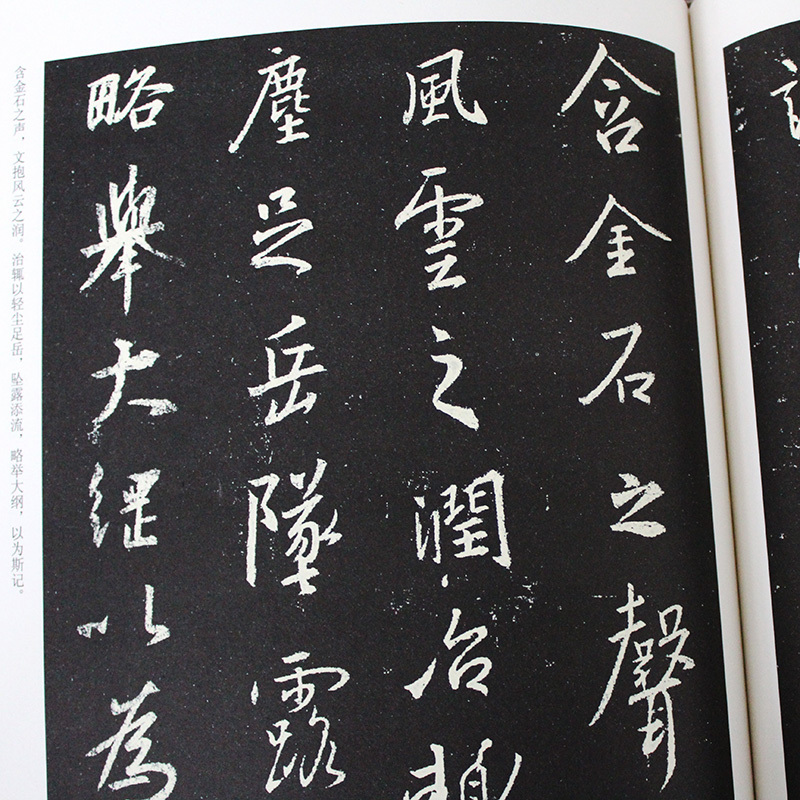 含金石之聲
風雲之潤治
塵足岳墜露
略舉大綱以為
含金石之声，文抱风云之润。治辄以轻尘足岳，坠露添流，略举大纲，以为斯记。